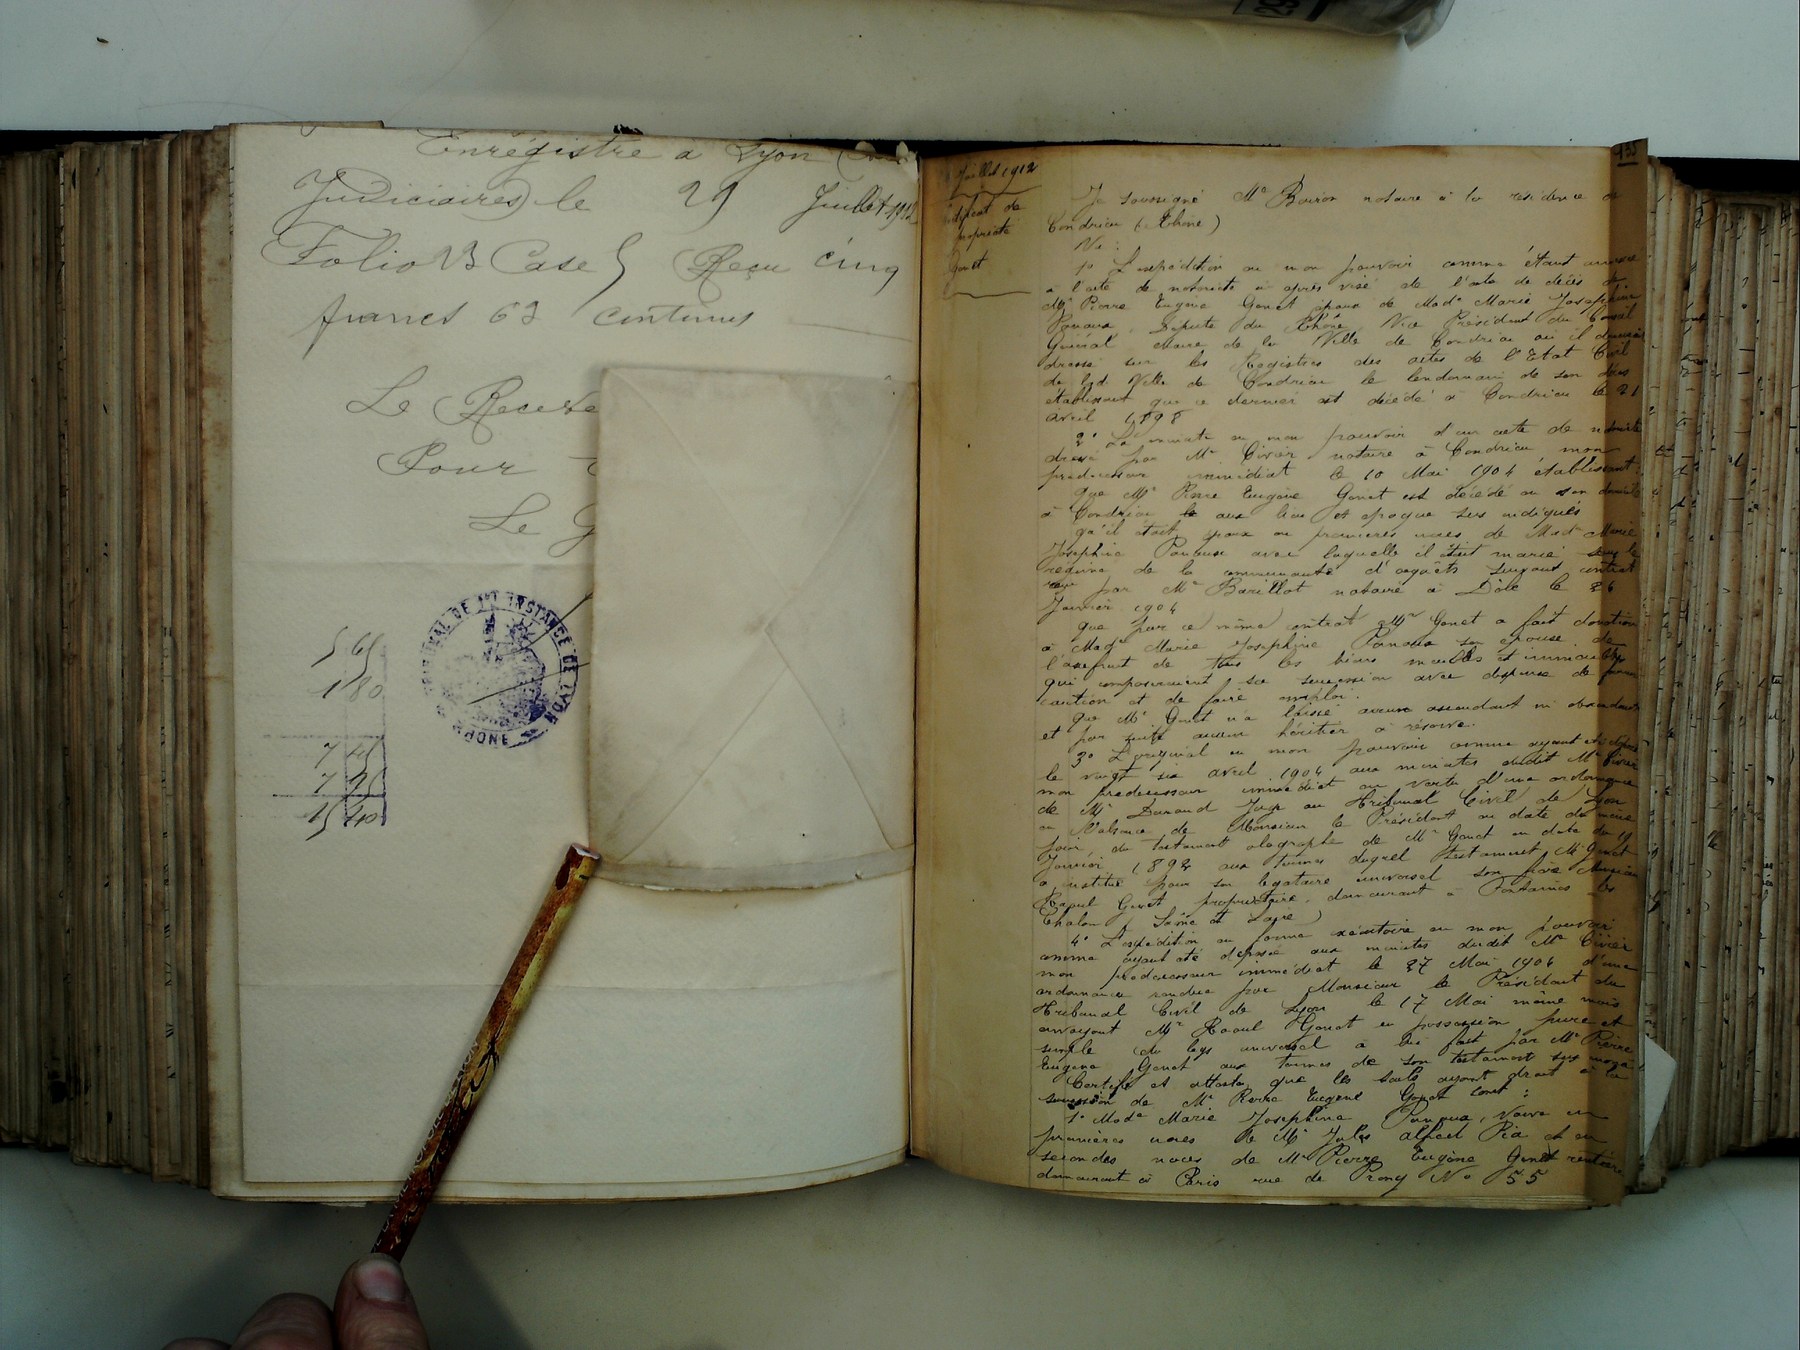 Enrégistré à Lyon
Judiciaires) le 29 Juillet 1912
Folio 13 Case 5 Reçu cinq
francs 63 centimes
Le Receve
Pour
Le G
TRIBUNAL DE 1ERE INSTANCE DE LYON
RHONE
5 65
1 80
7 45
7 95
15 40
Juillet 1912
de
propriété
Gonet
135
Je soussigné Me Boiron notaire à la résidence de
Condrieu (Rhône)
Vu :
1° L'expédition en mon pouvoir comme étant annexée
à l'acte de notoriété ci après visé de l'acte de décès de
Mr Pierre Eugène Gonet époux de Made Marie Joséphine
Panaux, Député du Rhône, Vice Président du Conseil
Général Maire de la Ville de Condrieu où il demeurait
dressé sur les Registres des actes de l'Etat Civil
de lad. Ville de Condrieu le lendemain de son décès
établissant que ce dernier est décédé à Condrieu le 21
avril 1898
2° La minute en mon pouvoir d'un acte de notoriété
dressé par Me Civier notaire à Condrieu, mon
prédécesseur immédiat le 10 Mai 1904 établissant :
que Mr Pierre Eugène Gonet est décédé en son domicile
à Condrieu le aux lieu et époque sus indiqués
qu'il était époux en premières noces de Made Marie
Joséphine Panaux avec laquelle il était marié sous le
régime de la communauté d'acquêts suivant contrat
reçu par Me Barillot notaire à Dôle le 26
Janvier 1904
que par ce même contrat Mr Gonet a fait donation
à Made Marie Joséphine Panaux son épouse de
l'usufruit de tous les biens meubles et immeubles
qui composeraient sa succession avec dispense de fournir
caution et de faire emploi.
que Mr Gonet n'a laissé aucun ascendant ni descendant
et par suite aucun héritier à réserve.
3° L'original en mon pouvoir comme ayant été déposé
le vingt six avril 1904 aux minutes dudit Me Civier
mon prédécesseur immédiat en vertu d'une ordonnance
de Mr Durand Juge au Tribunal Civil de Lyon
en l'absence de Monsieur le Président en date du même
jour, du testament olographe de Mr Gonet en date du 19
Janvier 1892 aux termes duquel testament Mr Gonet
a institué pour son légataire universel son frère Monsieur
Raoul Gonet propriétaire, demeurant à Fontaines les
Chalon (Saône et Loire)
4° L'expédition en forme exécutoire en mon pouvoir
comme ayant été déposée aux minutes dudit Me Civier
mon prédécesseur immédiat le 27 Mai 1904 d'une
ordonnance rendue par Monsieur le Président du
Tribunal Civil de Lyon le 17 Mai même mois
envoyant Mr Raoul Gonet en possession pure et
simple du legs universel à lui fait par Mr Pierre
Eugène Gonet aux termes de son testament sus
Certifie et atteste que les seuls ayant droit à la
succession de Mr Pierre Eugène Gonet sont :
1° Made Marie Joséphine Panaux, Veuve en
premières noces de Mr Jules Alfred Pia et en
secondes noces de Mr Pierre Eugène Gonet rentière
demeurant à Paris rue de Prony No 55